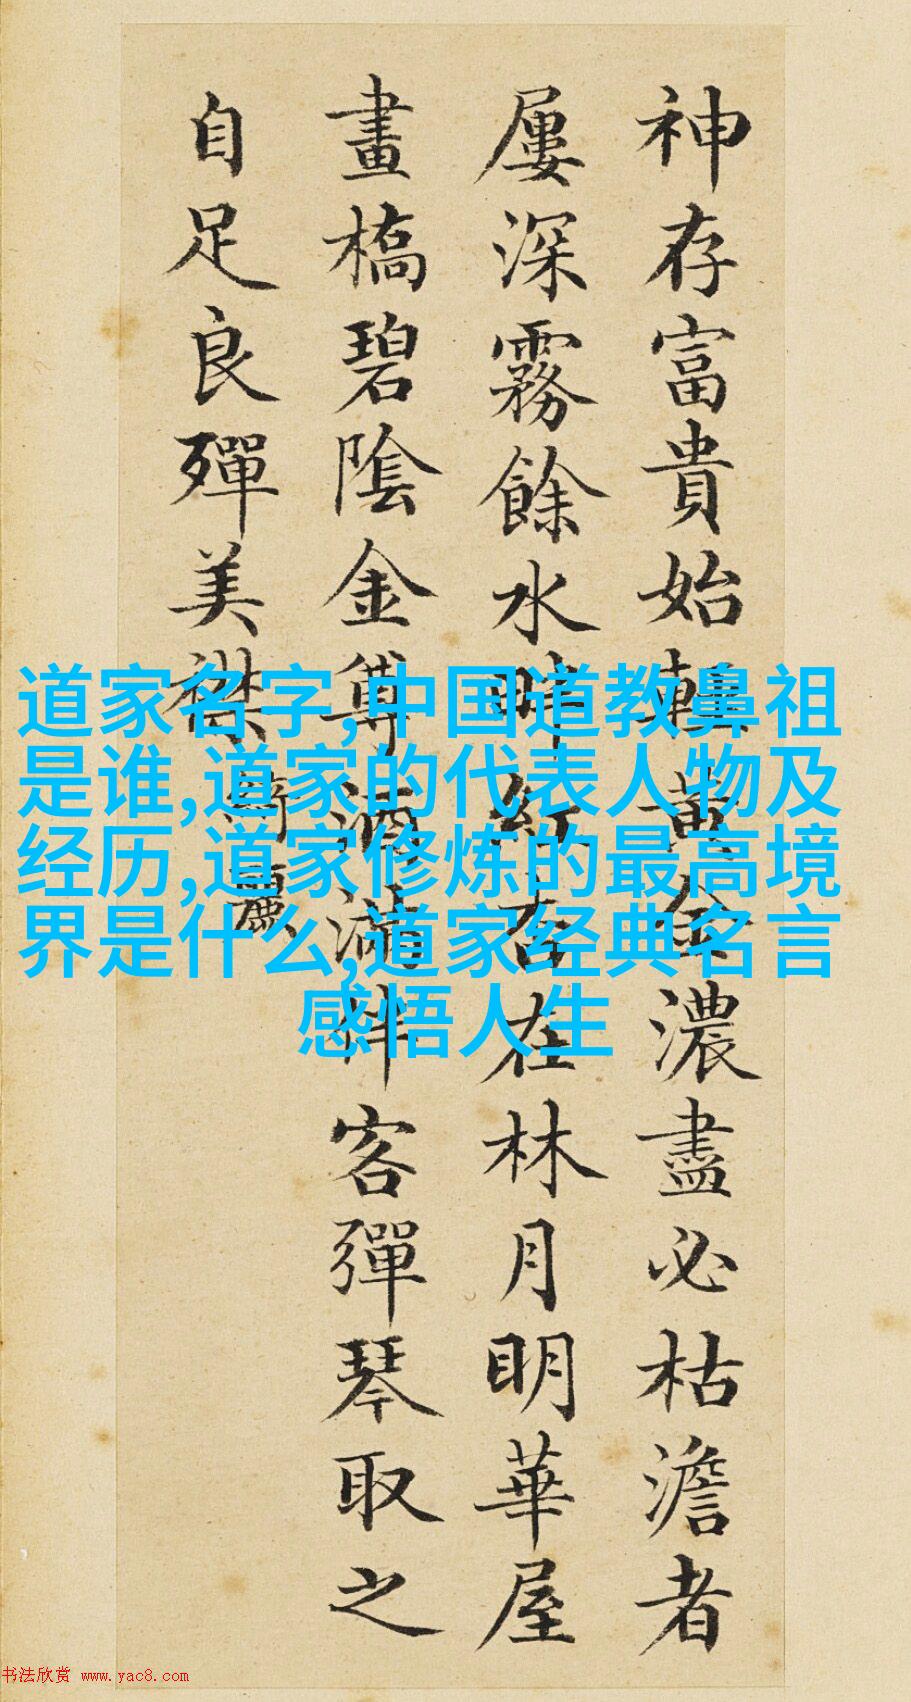 神存富貴始輕黃金濃盡必枯澹者
屢深霧餘水畔紅杏在林月明華屋
畫橋碧陰金尊酒滿伴客彈琴取之
自足良殫美襟
綺麗
道家名字,中国道教鼻祖
是谁,道家的代表人物及
经历,道家修炼的最高境
界是什么,道家经典名言
感悟人生
书法欣赏 www.yac8.com